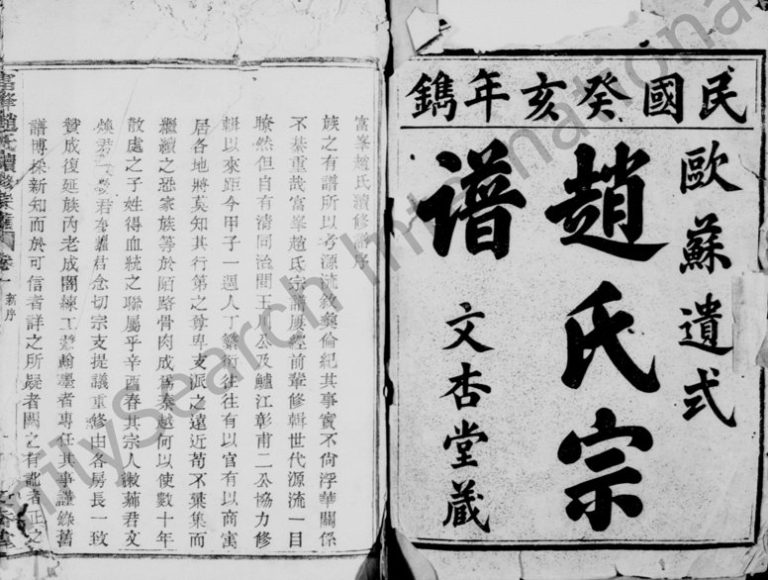 民國癸亥年鐫
歐蘇遺式
趙氏宗
譜
文杏堂藏
富峯趙氏續修譜序
族之有譜所以考源流敘彝倫紀其事實不尚浮華關係
不綦重哉富峯趙氏宗譜屢經前輩修輯世代源流一目
瞭然但自有清同治間王公及鱸江彰甫二公協力修
輯以來距今甲子一週人丁繁衍往往有以官有以商寓
居各地將莫知其行第之尊卑支派之遠近苟不葉集而
繼續之恐家族等於陌路骨肉成為秦越何以使數十年
散處之子姓得血統之聯屬乎辛酉春其宗人 君文
煥君 君 君念切宗支提議重修由各房長一致
贊成復延族內老成閣練工 翰墨者專任其事謹錄舊
譜博採新知而於可信者詳之所疑者闕之有訛者正之
趙氏續修宗譜 卷一 新序
FamilySearch International